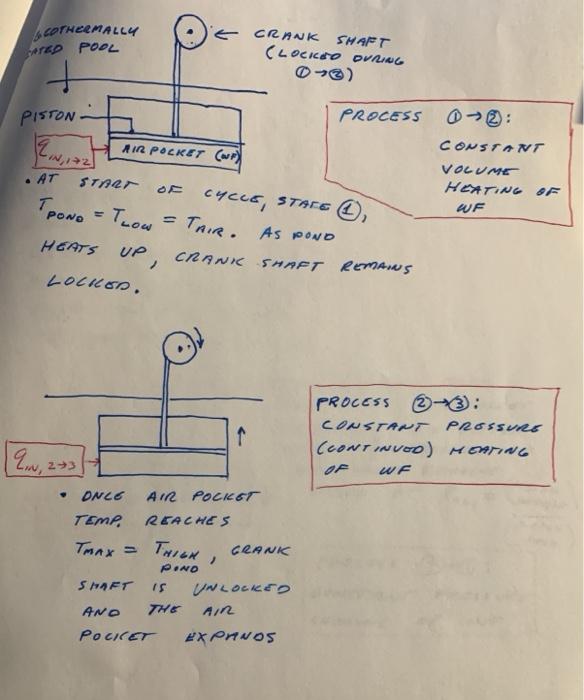 POOL
CRANK SHAFT
(LOCKED DURING
①→②)
PISTON
q IN,1→2
AIR POCKET (WF)
PROCESS ①→②:
CONSTANT
VOLUME
HEATING OF
WF
• AT START OF CYCLE, STATE ①,
T POND = T LOW = T AIR. AS POND
HEATS UP, CRANK SHAFT REMAINS
LOCKED.
q IN, 2→3
PROCESS ②→③:
CONSTANT PRESSURE
(CONTINUED) HEATING
OF WF
• ONCE AIR POCKET
TEMP. REACHES
T MAX = T HIGH POND, CRANK
SHAFT IS UNLOCKED
AND THE AIR
POCKET EXPANDS